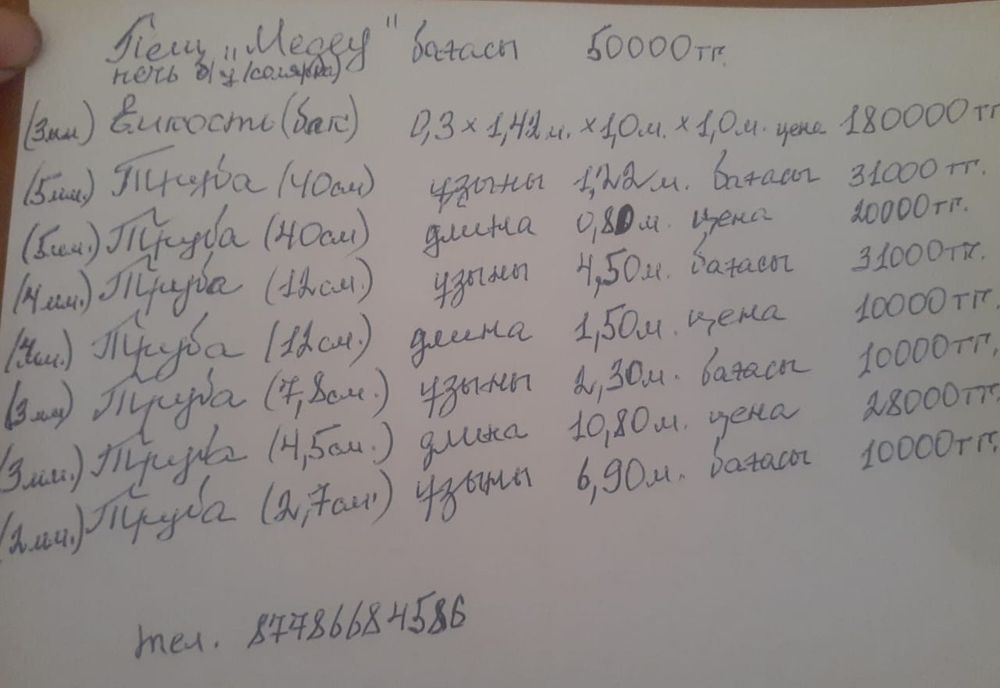 Пеш „Медеу" бағасы 50000тг.
печь б/у (солярка)
(3мм) Ёмкость (бак) 0,3 × 1,42м. × 1,0м. × 1,0м. цена 180000тг
(5мм) Труба (40см) ұзыны 1,22м. бағасы 31000тг.
(5мм.) Труба (40см) длина 0,80м. цена 20000тг.
(4мм.) Труба (12см.) ұзыны 4,50м. бағасы 31000тг.
(4мм.) Труба (12см.) длина 1,50м. цена 10000тг
(3мм) Труба (7,8см.) ұзыны 2,30м. бағасы 10000тг.
(3мм.) Труба (4,5см.) длина 10,80м. цена 28000тг
(2мм.) Труба (2,7см.) ұзыны 6,90м. бағасы 10000тг.
тел. 87786684586